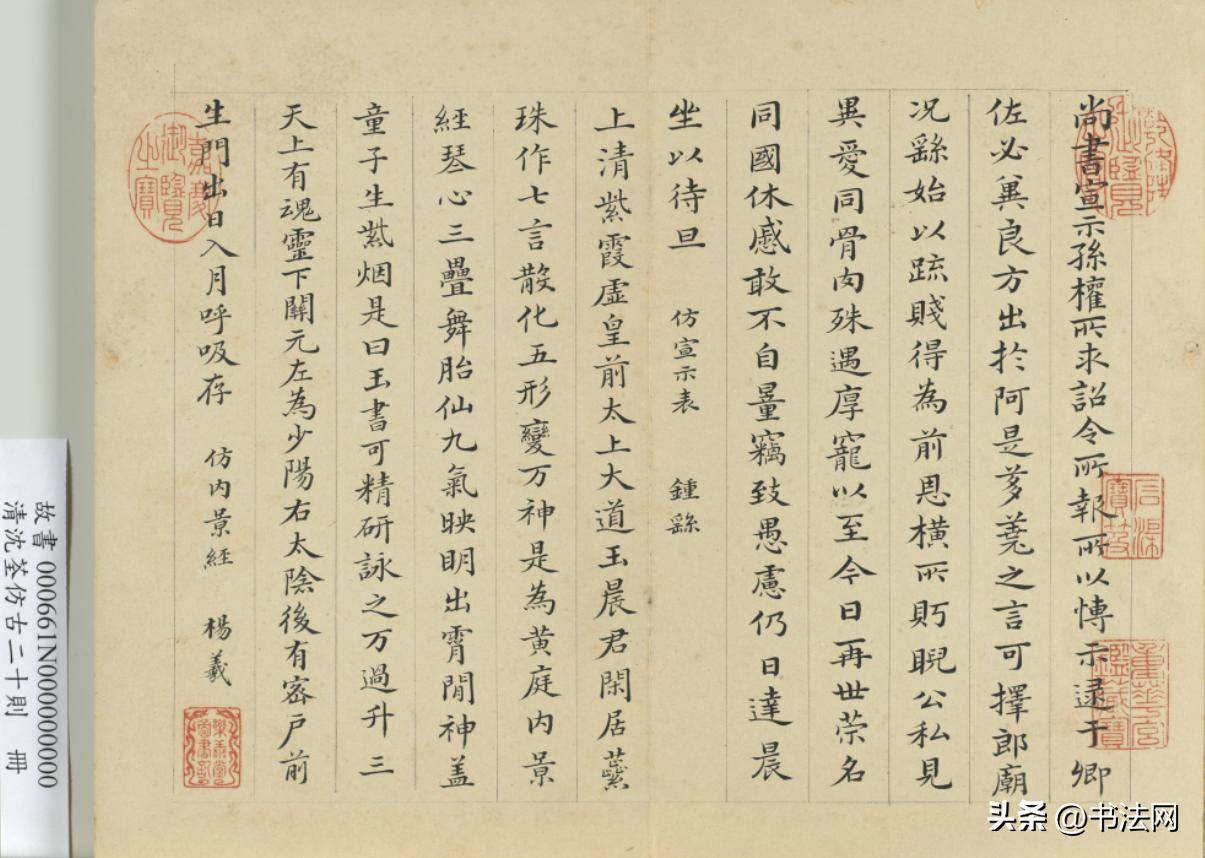 尚書宣示孫權所求詔令所報所以博示逮于卿
佐必冀良方出於阿是芻蕘之言可擇郎廟
况繇始以疏賤得為前恩橫所眄睨公私見
異愛同骨肉殊遇厚寵以至今日再世荣名
同國休慼敢不自量竊致愚慮仍日達晨
坐以待旦 仿宣示表 鍾繇
上清紫霞虛皇前太上大道玉晨君閑居蘂
珠作七言散化五形變万神是為黄庭內景
經琴心三疊舞胎仙九氣映明出霄間神盖
童子生紫烟是曰玉書可精研詠之万過升三
天上有魂靈下關元左為少陽右太陰後有密户前
生門出日入月呼吸存 仿内景經 楊羲
嘉慶御覽之寶
故書 000661N000000000
清沈荃仿古二十則 冊
头条 @书法网